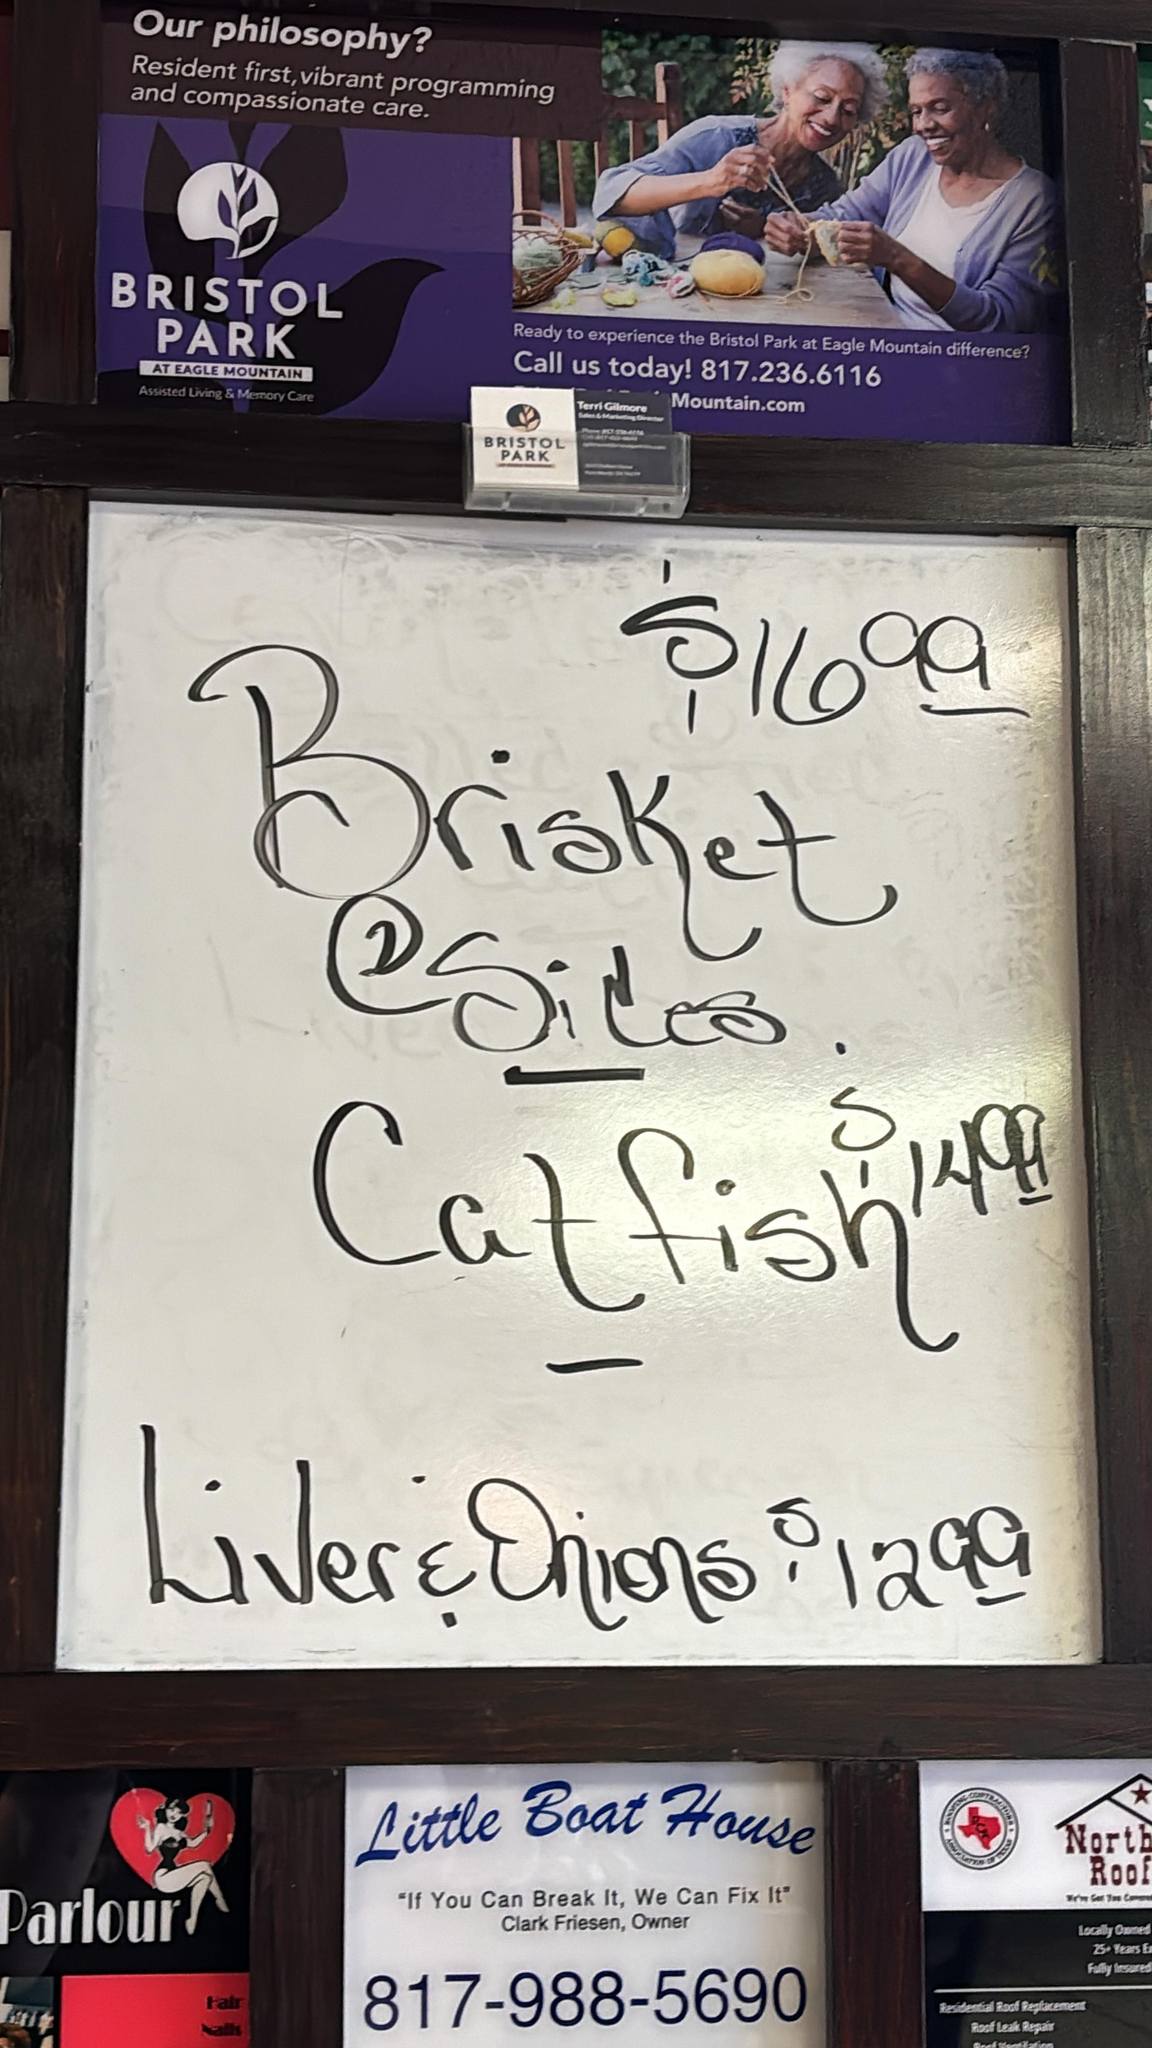 Our philosophy?
Resident first, vibrant programming
and compassionate care.
BRISTOL
PARK
AT EAGLE MOUNTAIN
Assisted Living & Memory Care
Ready to experience the Bristol Park at Eagle Mountain difference?
Call us today! 817.236.6116
Mountain.com
BRISTOL
PARK
Terri Gilmore
Sales & Marketing Director
$16 99
Brisket
② Sides
$14 99
Catfish
Liver & Onions $12 99
Parlour
Hair
Nails
Little Boat House
"If You Can Break It, We Can Fix It"
Clark Friesen, Owner
817-988-5690
ROOFING CONTRACTORS
ASSOCIATION OF TEXAS
North
Roof
Locally Owned
25+ Years
Fully Insured
Residential Roof Replacement
Roof Leak Repair